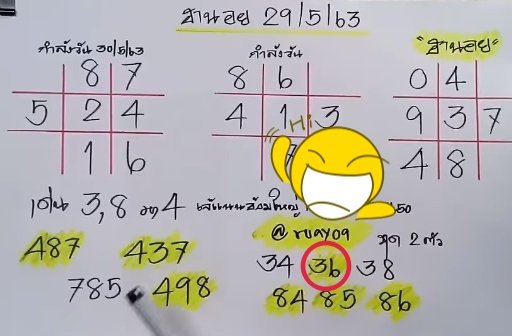 ฮานอย 29/5/63
กำลังวัน 30/5/63
กำลังวัน
"ฮานอย"
8 7
5 2 4
1 6
8 6
4 1 3
0 4
9 3 7
4 8
Hi
เด่น 3,8 รอง 4
50
@ruay09
487 437
785 498
ชุด 2 ตัว
34 36 38
84 85 86